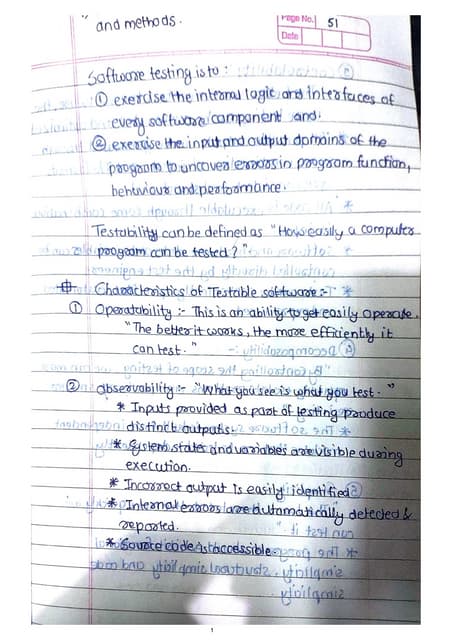 Page No. 51
Date
and methods.
Software testing is to :
① exercise the internal logic and interfaces of
every software component and.
② exercise the input and output domains of the
program to uncover errors in program function,
behaviour and performance.
Testability can be defined as "How easily a computer
program can be tested?"
Characteristics of Testable software :-
① Operatability :- This is an ability to get easily operate.
"The better it works, the more efficiently it
can test."
② observability :- "What you see is what you test."
* Inputs provided as part of testing produce
distinct outputs.
* System states and variables are visible during
execution.
* Incorrect output is easily identified
* Internal errors are automatically detected &
reported.
* Source code is accessible.
1